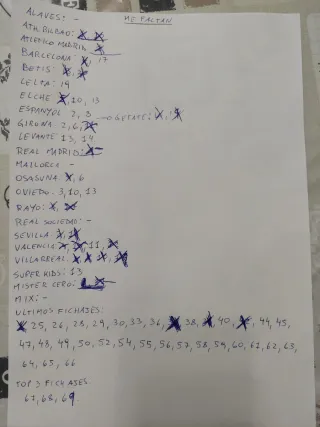 ME FALTAN
ALAVES: -
ATH. BILBAO:
ATLETICO MADRID:
BARCELONA: 17
BETIS:
CELTA: 19
ELCHE 10, 13
ESPANYOL 2, 3
GETAFE:
GIRONA 2, 6,
LEVANTE 13, 14
REAL MADRID:
MALLORCA -
OSASUNA: 6
OVIEDO: 3, 10, 13
RAYO:
REAL SOCIEDAD: -
SEVILLA:
VALENCIA 11,
VILLARREAL:
SUPER KIDS: 13
MISTER CERO:
MIX: -
ULTIMOS FICHAJES:
25, 26, 28, 29, 30, 33, 36, 38, 40, 44, 45,
47, 48, 49, 50, 52, 54, 55, 56, 57, 58, 59, 60, 61, 62, 63,
64, 65, 66
TOP 3 FICHAJES:
67, 68, 69